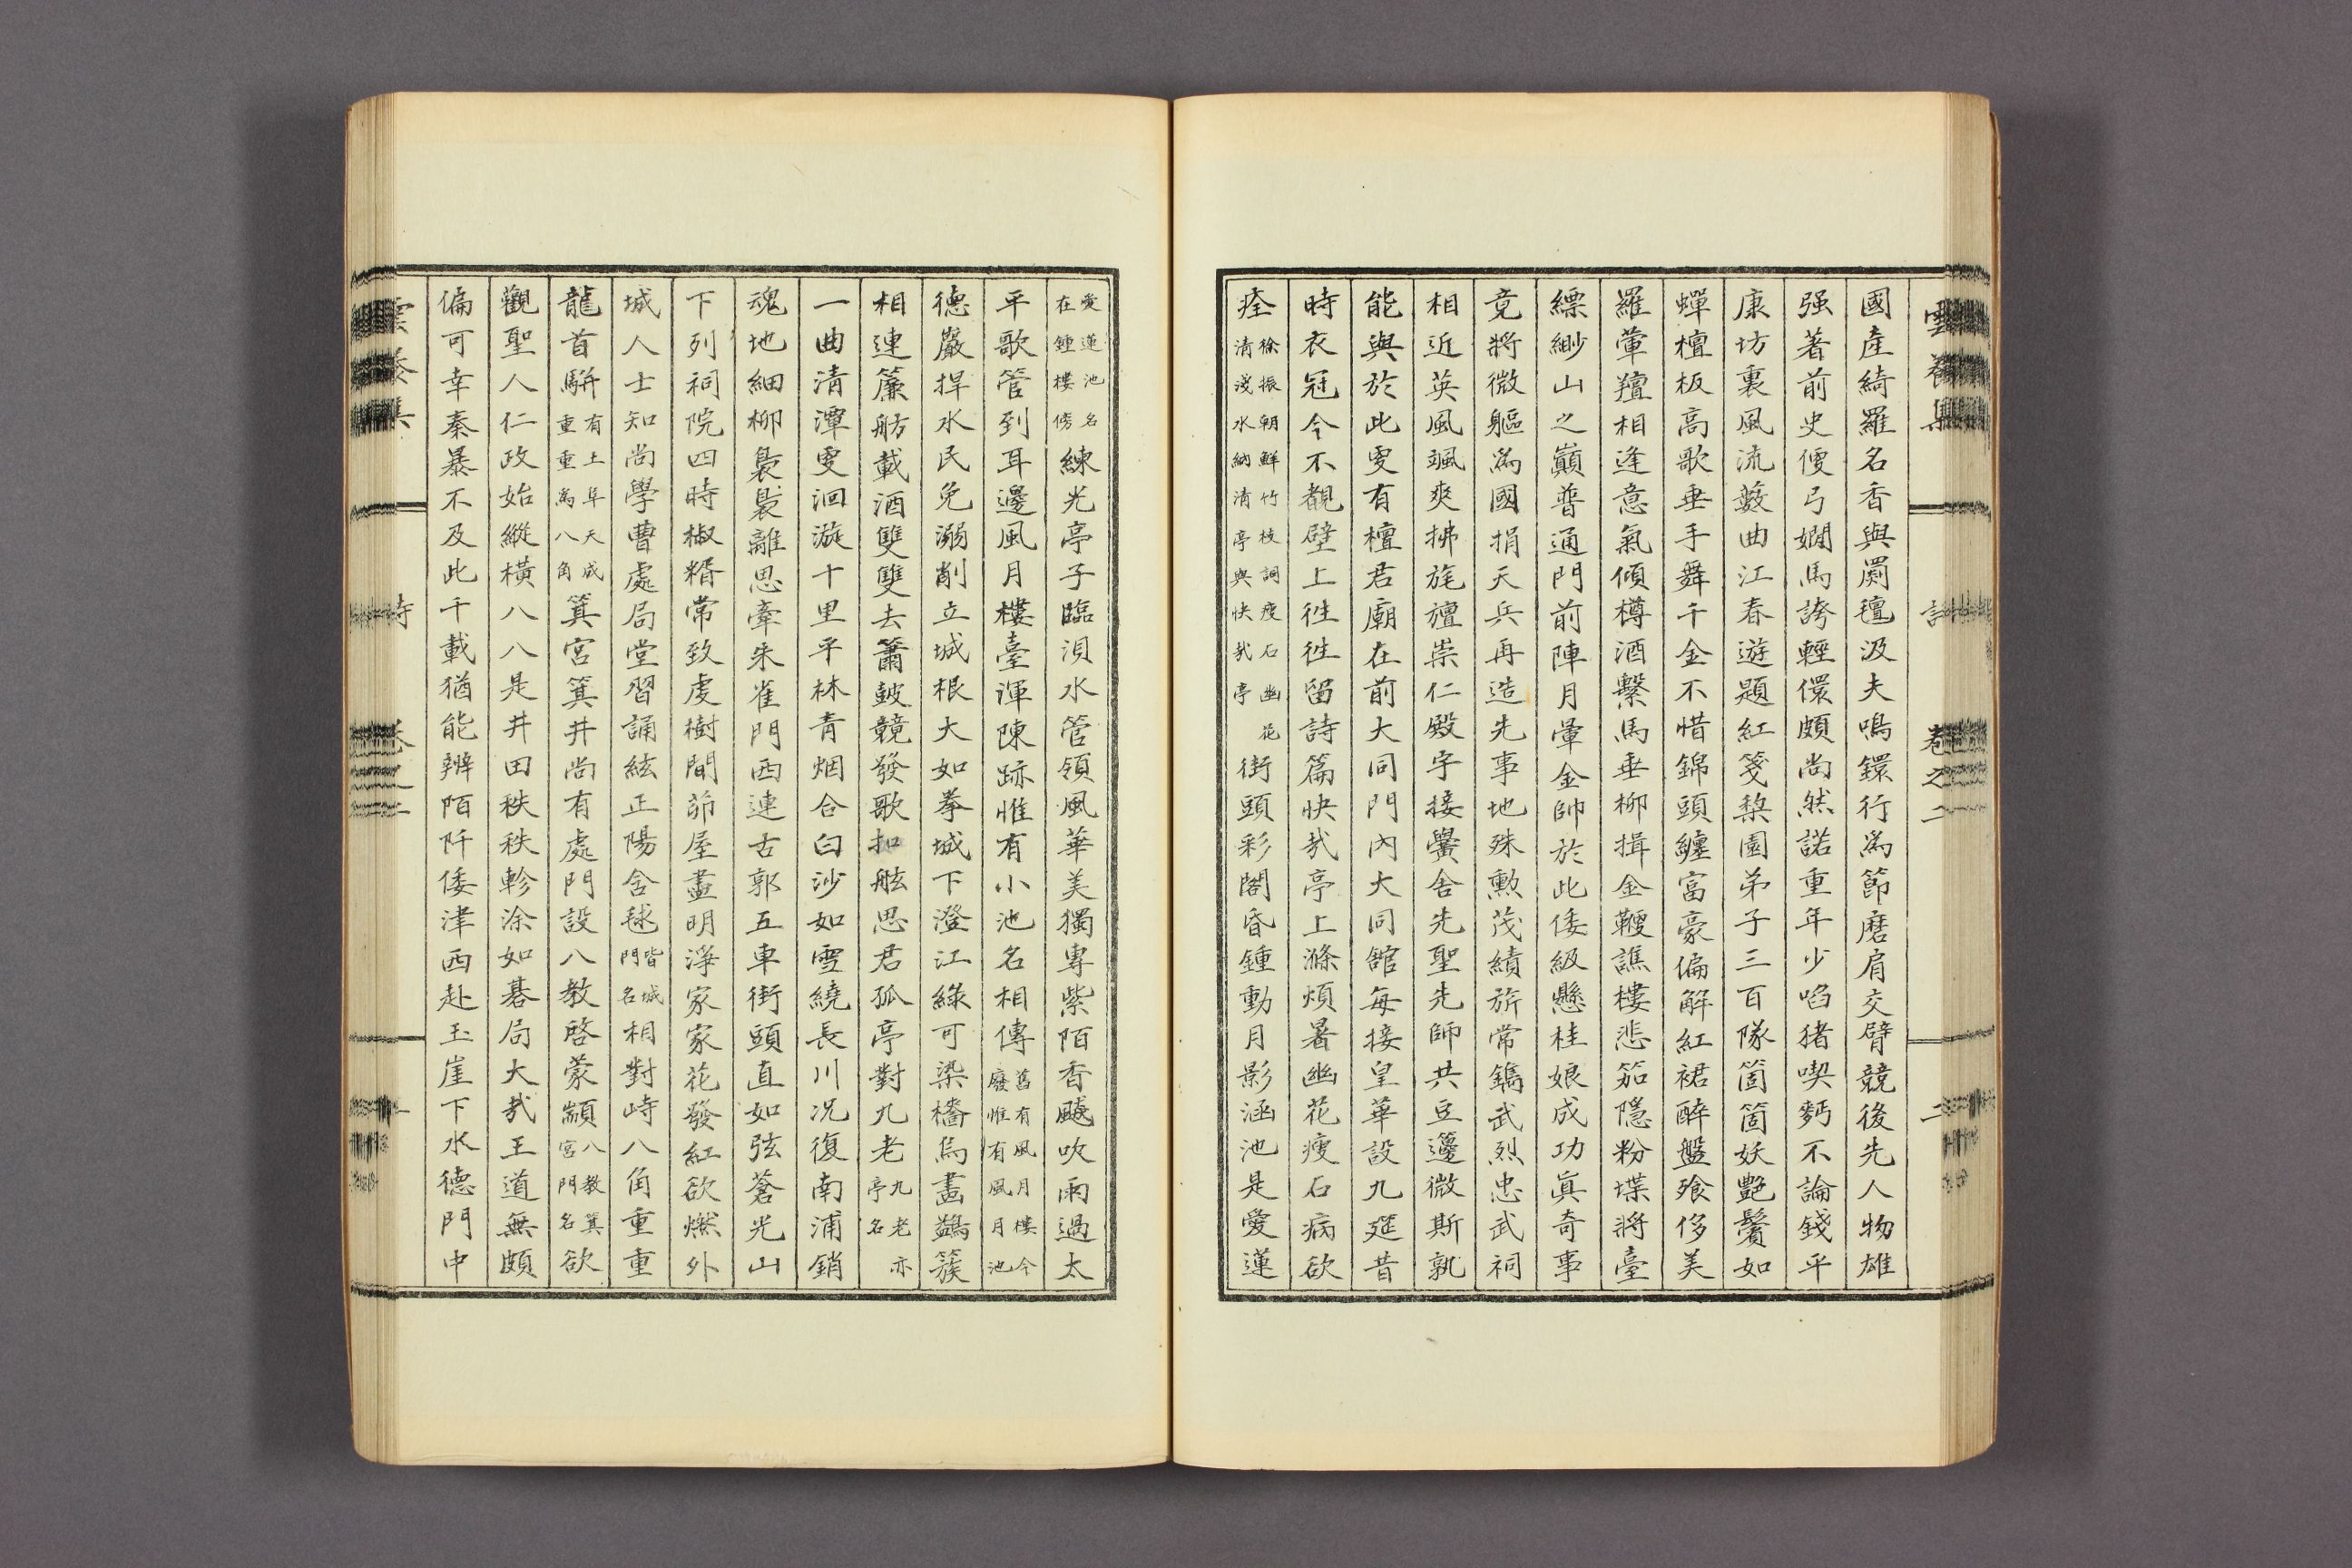 雲養集 詩 卷之二 二
國產綺羅名香與罽氊汲夫鳴鐶行爲節磨肩交臂競後先人物雄
强著前史便弓嫺馬誇輕儇頗尚然諾重年少啗猪喫麪不論錢平
康坊裏風流藪曲江春遊題紅箋棃園弟子三百隊箇箇妖艶鬢如
蟬檀板高歌垂手舞千金不惜錦頭纏富豪偏解紅裙醉盤飱侈美
羅葷羶相逢意氣傾樽酒繫馬垂柳揖金鞭譙樓悲笳隱粉堞將臺
縹緲山之巔普通門前陣月暈金帥於此倭級懸桂娘成功眞奇事
竟將微軀爲國捐天兵再造先事地殊勲茂績旂常鐫武烈忠武祠
相近英風颯爽拂旄旜崇仁殿宇接黌舍先聖先師共豆籩微斯孰
能與於此更有檀君廟在前大同門內大同舘每接皇華設九筵昔
時衣冠今不覩壁上徃徃留詩篇快㢤亭上滌煩暑幽花瘦石病欲
痊 徐振朝鮮竹枝詞瘦石幽花清淺水納清亭與快㢤亭 街頭彩閣昏鍾動月影涵池是愛蓮
愛蓮池名在鍾樓傍 練光亭子臨浿水管領風華美獨專紫陌香颷吹雨過太
平歌管到耳邊風月樓臺渾陳跡惟有小池名相傳 舊有風月樓今廢惟有風月池
德巖捍水民免溺削立城根大如拳城下澄江綠可染檣烏畵鷁簇
相連簾舫載酒雙雙去簫鼓競發歌扣舷思君孤亭對九老 九老亦亭名
一曲清潭更洄漩十里平林青烟合白沙如雪繞長川况復南浦銷
魂地細柳裊裊離思牽朱雀門西連古郭五車街頭直如弦蒼光山
下列祠院四時椒糈常致虔樹間茆屋盡明淨家家花發紅欲燃外
城人士知尚學曹處局堂習誦絃正陽含毬 皆城門名 相對峙八角重重
龍首騈 有土阜天成重重爲八角 箕宮箕井尚有處門設八敎啓蒙顓 八敎箕宮門名 欲
觀聖人仁政始縱橫八八是井田秩秩軫涂如碁局大㢤王道無頗
偏可幸秦暴不及此千載猶能辨陌阡倭津西赴玉崖下水德門中
雲養集 詩 卷之二